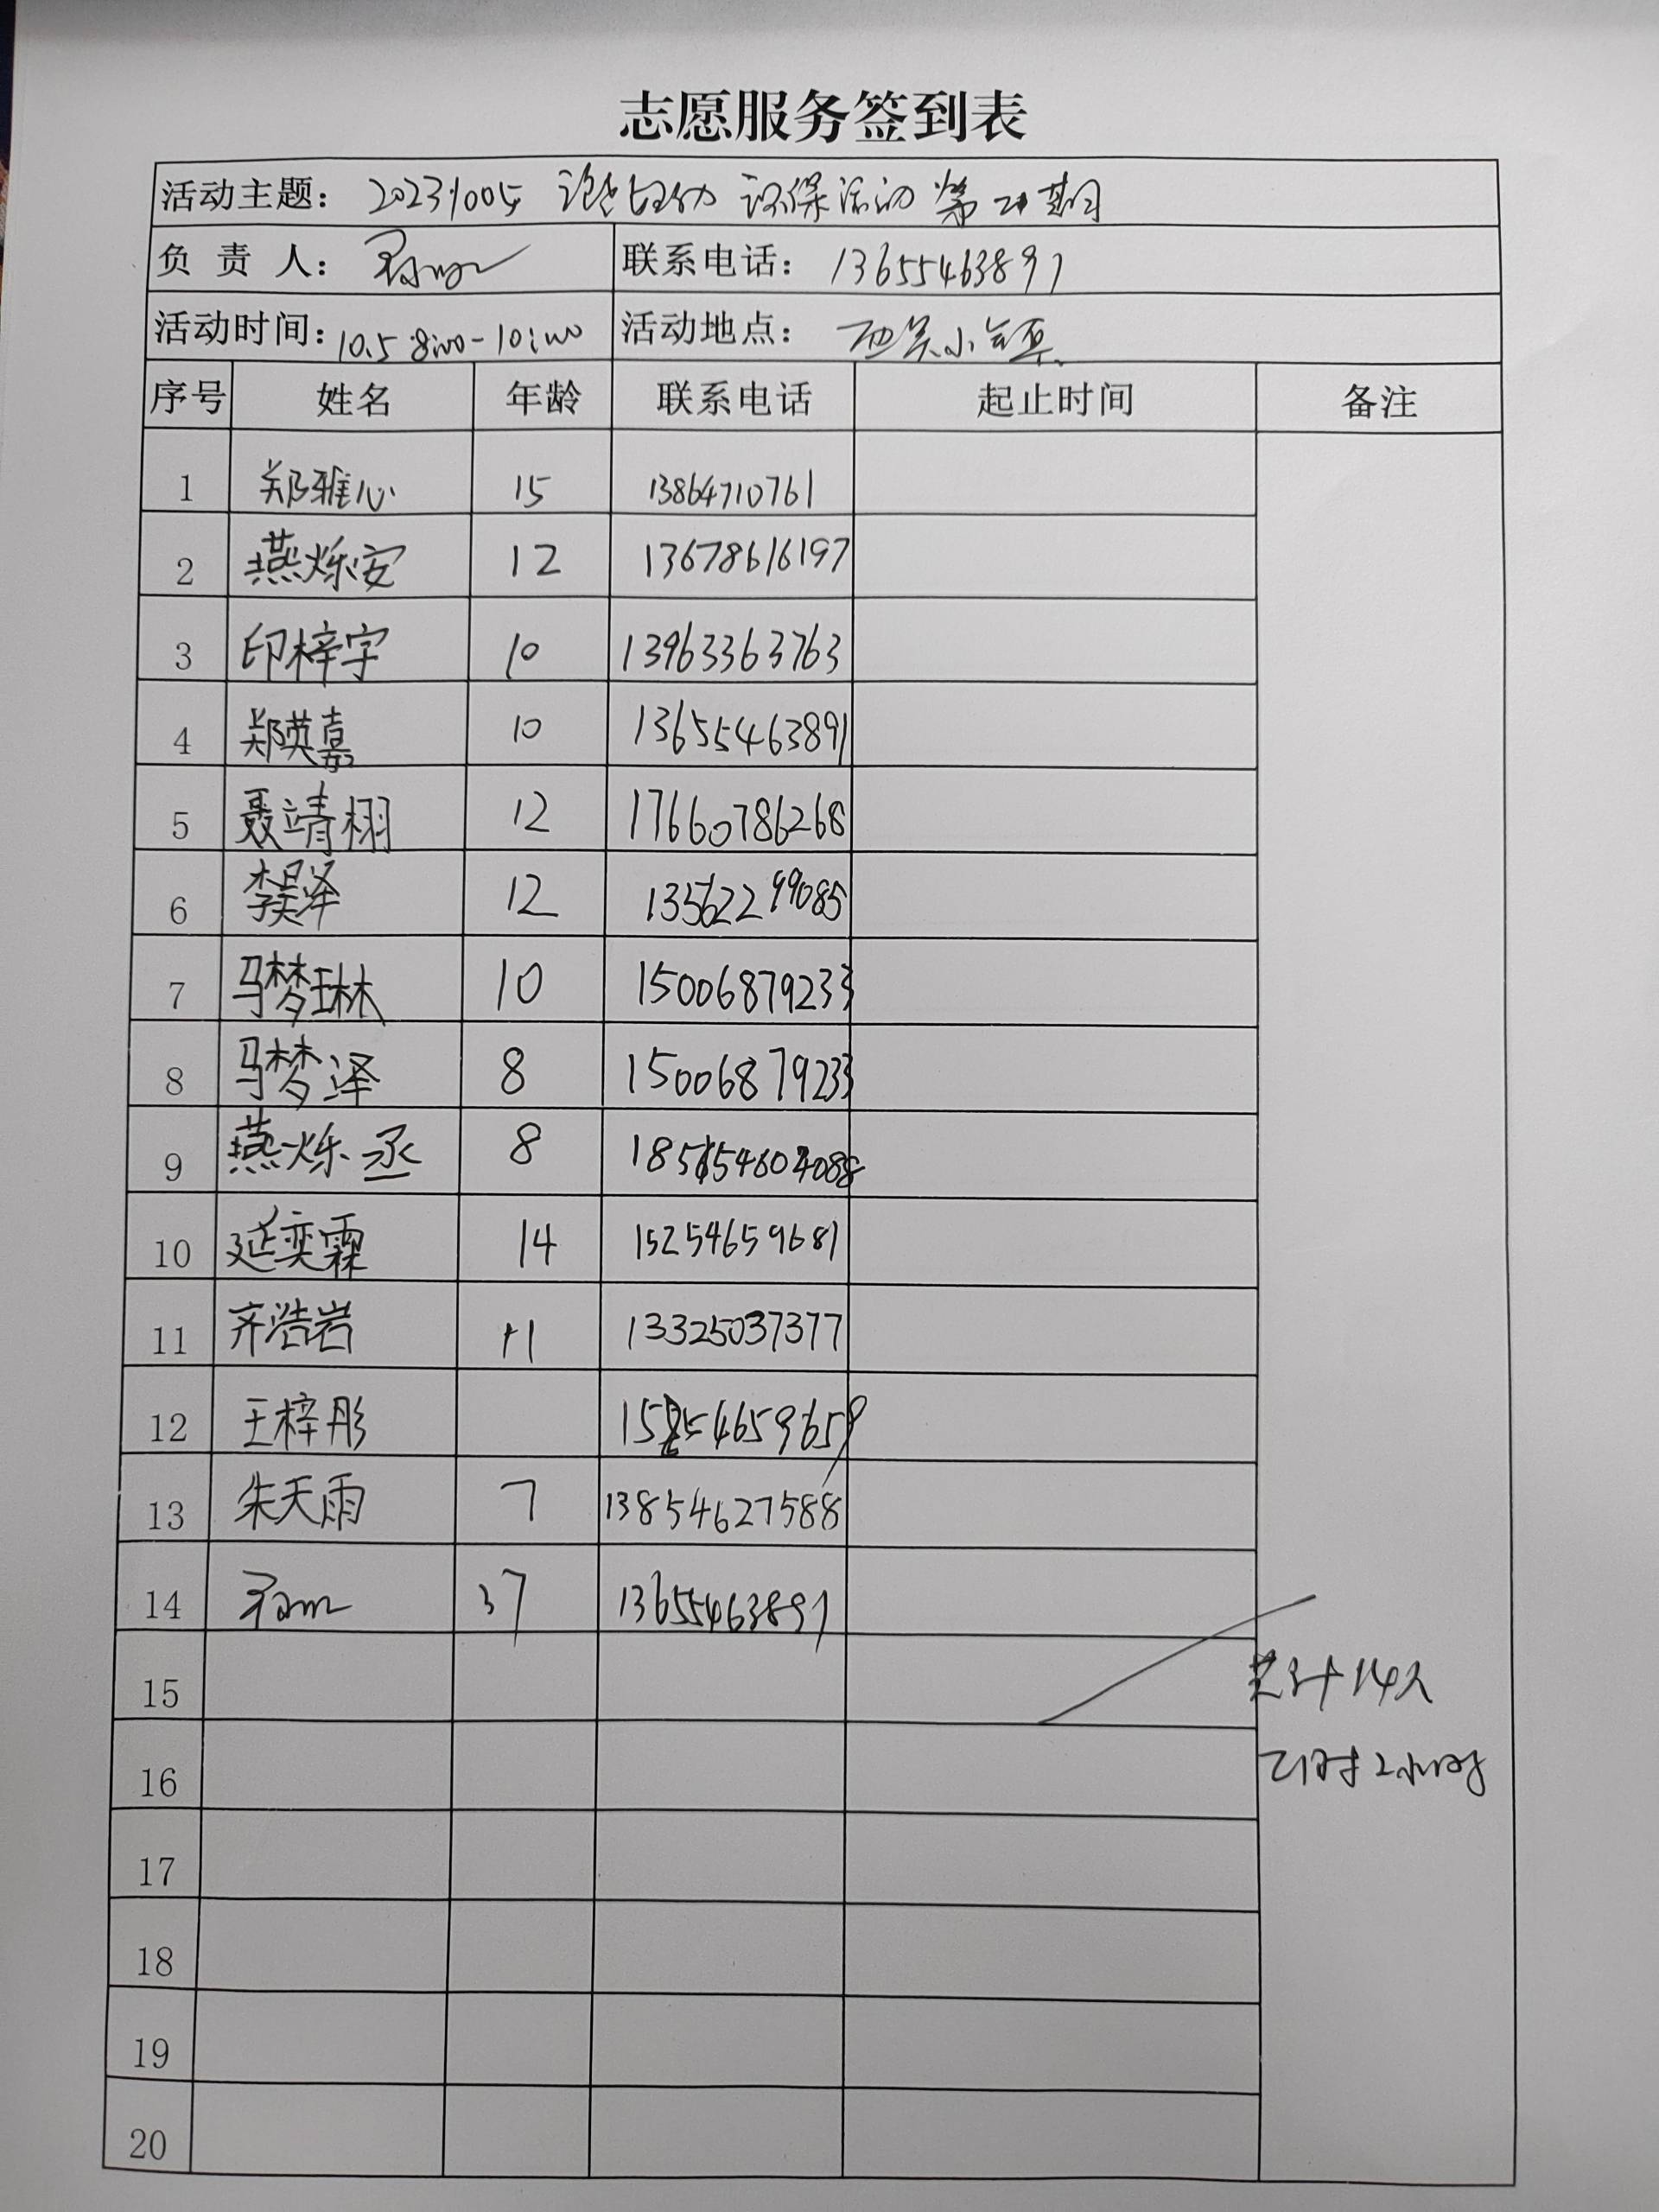 志愿服务签到表
活动主题： 20231005 环保活动 第21期
负 责 人： 联系电话： 13655463891
活动时间： 10.5 8:00-10:00 活动地点： 西吴小镇
序号 姓名 年龄 联系电话 起止时间 备注
1 郑雅心 15 13864710761
2 燕烁安 12 13678616197
3 印梓宇 10 13963363763
4 郑英嘉 10 13655463891
5 聂靖栩 12 17660786268
6 李昊泽 12 13562299085
7 马梦琳 10 15006879233
8 马梦泽 8 15006879233
9 燕烁丞 8
10 延奕霖 14 15254659681
11 齐浩岩 11 13325037377
12 王梓彤
13 朱天雨 7 13854627588
14 37 13655463891
15
共计14人
16
计时2小时
17
18
19
20